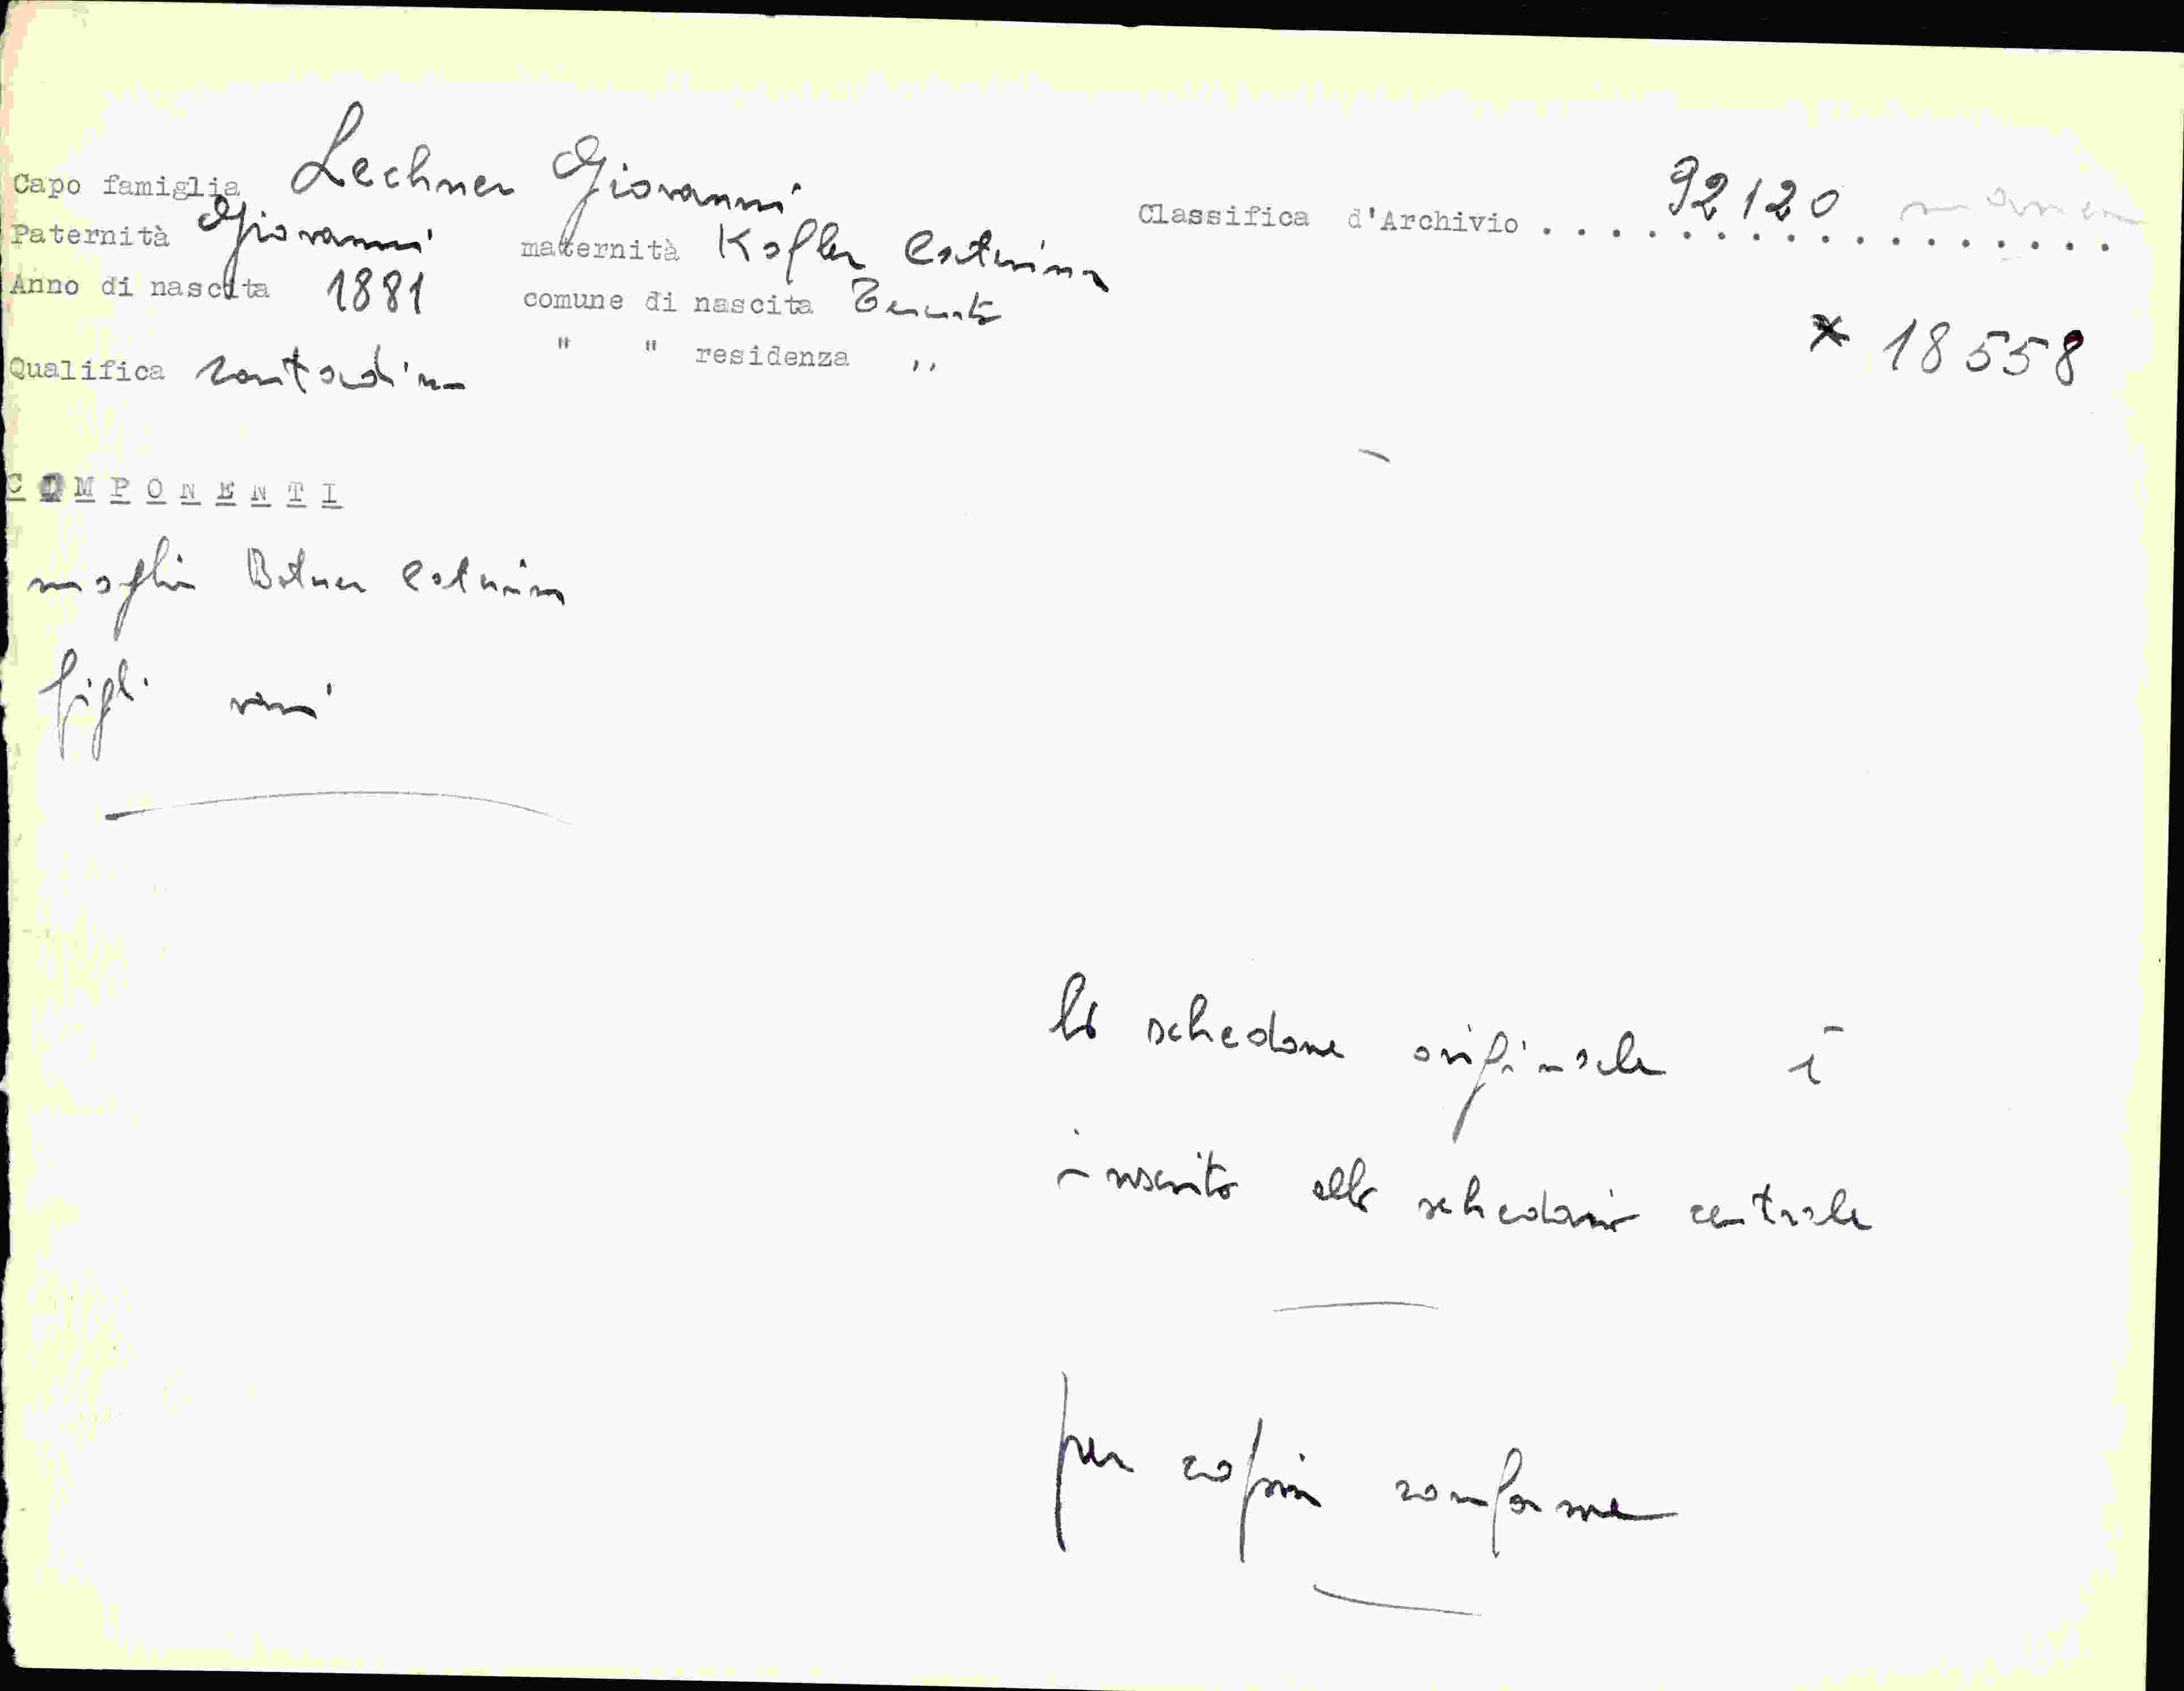 Capo famiglia Lechner Giovanni
Classifica d'Archivio . . . . . . . . . . . . . . . . . 92120
Paternità Giovanni maternità Kofler Caterina
Anno di nascita 1881 comune di nascita
* 18558
Qualifica contadino " " residenza ,,
COMPONENTI
moglie Caterina
figli
lo schedone originale è
inserito allo schedario centrale
per copia conforme